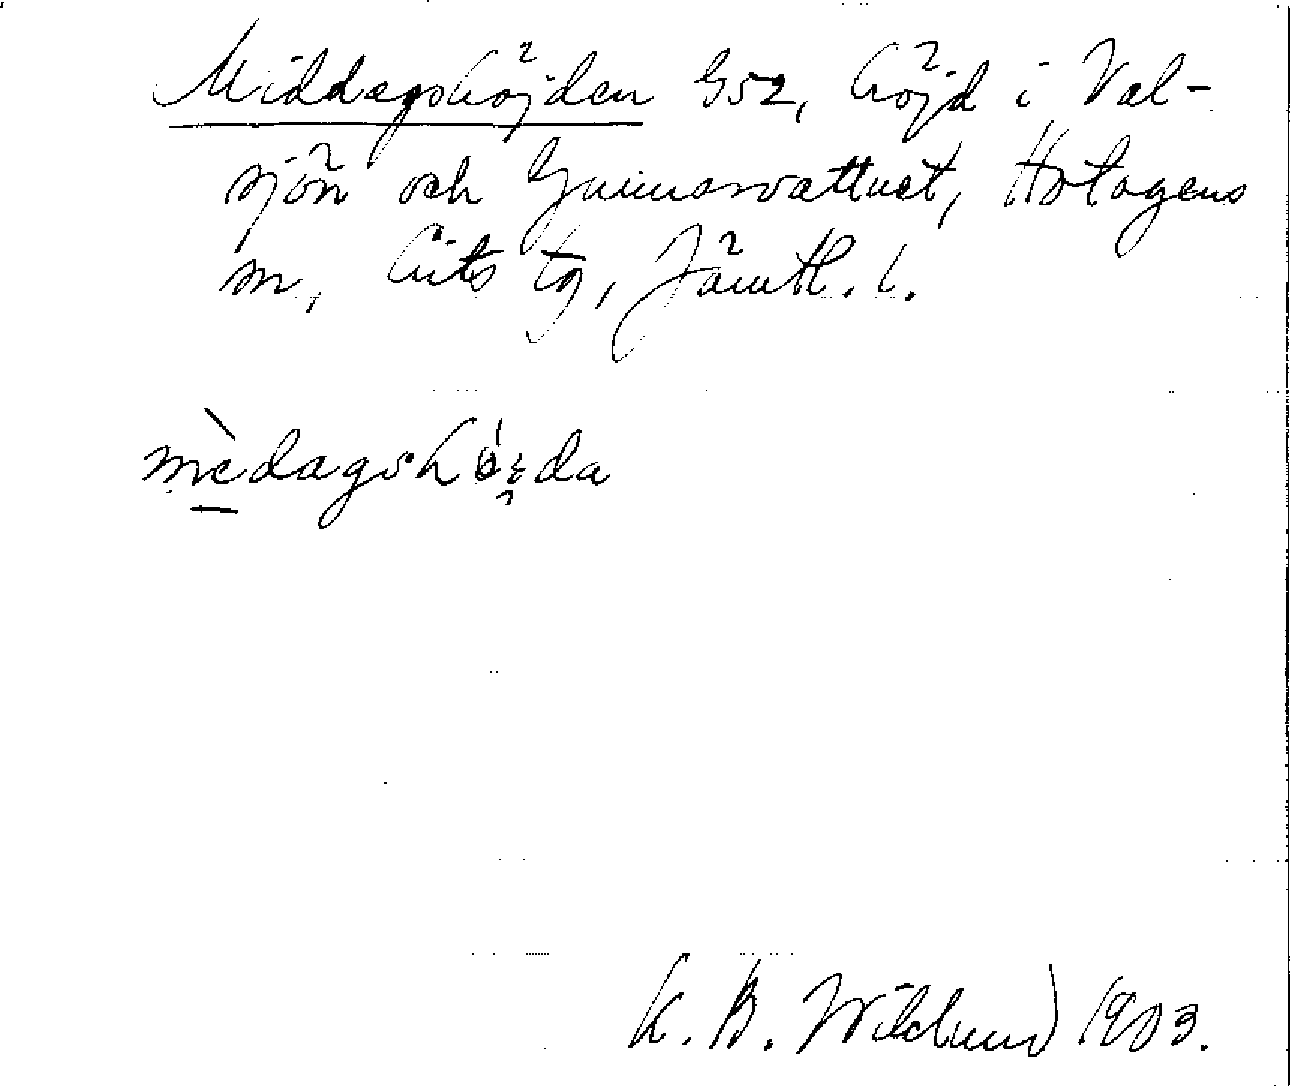 Middagshöjden G52, höjd i Val-
sjön och Gunnarvattnet, Hotagens
sn, Lits tg, Jämtl. l.
mèdagshö́i̯da
K. B. Wiklund 1903.